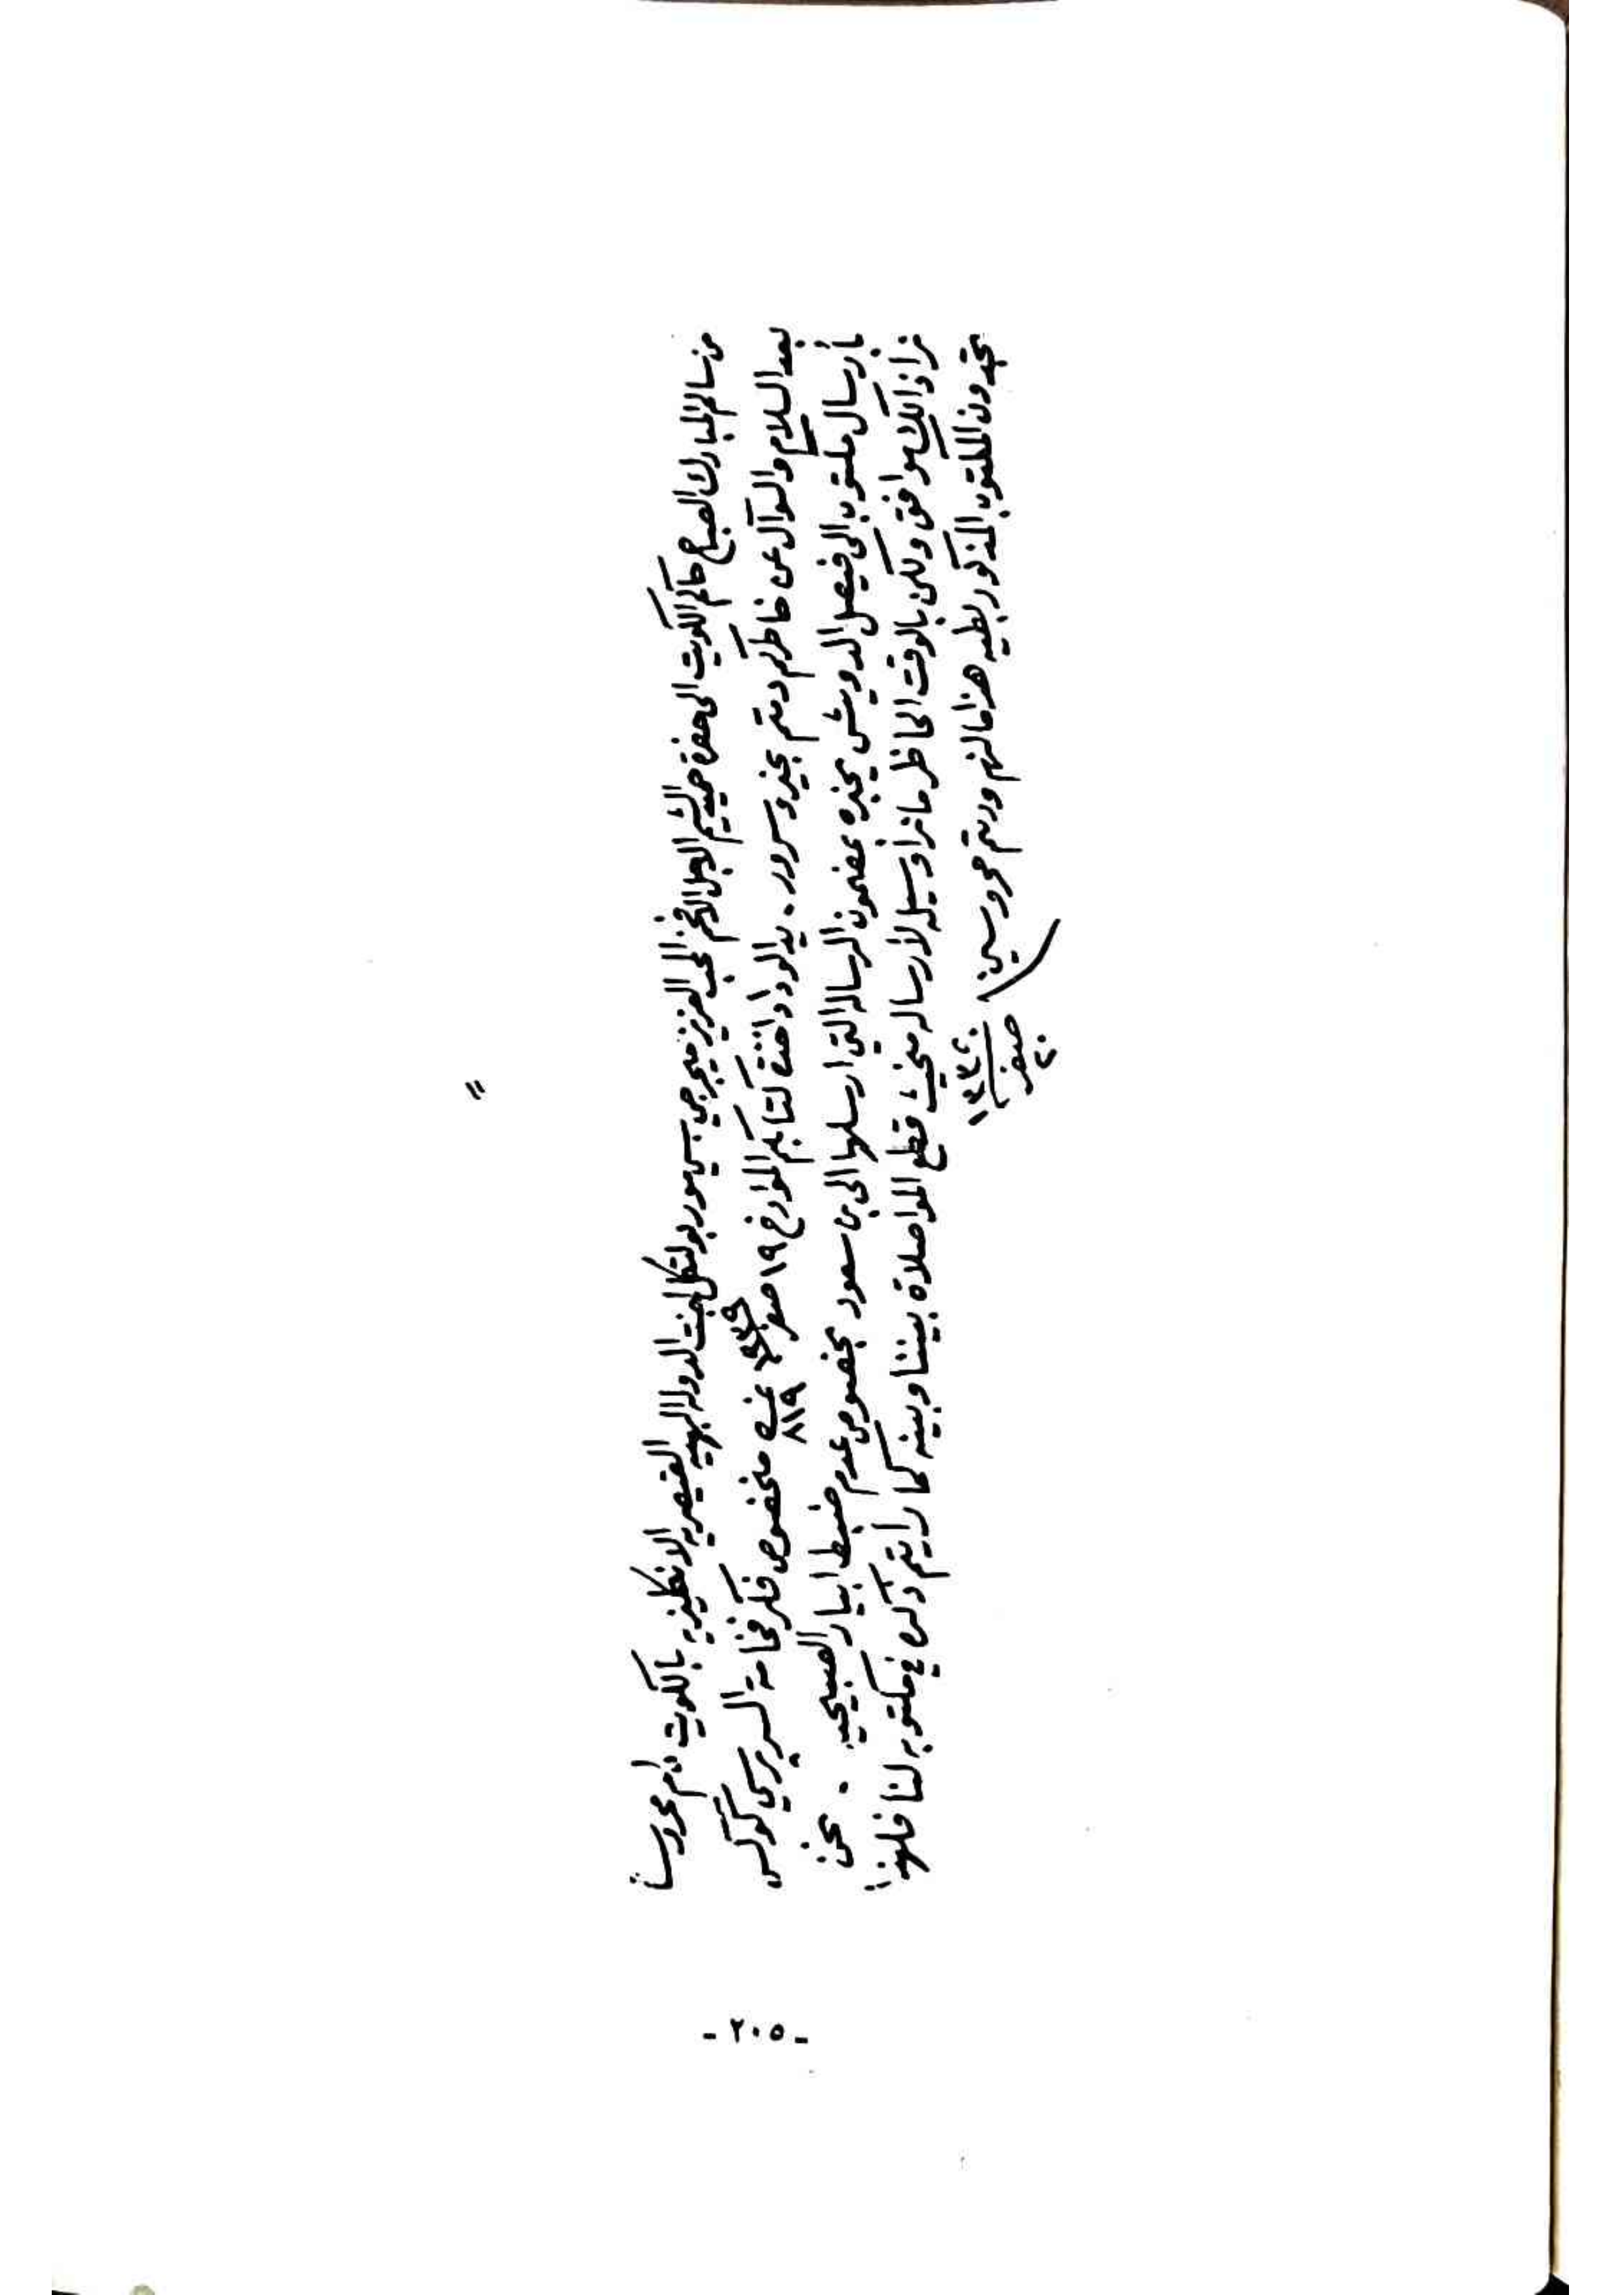 من سالم المبارك الصباح حاكم الكويت الى حضرة حميد الشيم الاجل الافخم المحب العزيز ميجر جي سي مور بولتكل اجنت الدوله البهيه القيصريه الانكليزيه بالكويت دام محروساً
بعد السلام والسوآل عن خاطركم دمتم بخير وسرور. بيد الوداد اخذة كتابكم المؤارخ ١٩ صفر نمرة ٨١٩ مخصوص فكر فخامة السر برسي كوكس
بأرسال مكتوب الى فيصل الدويش يخبره بمضمون الرساله التي ارسلها الى بن سعود بخصوص عدم ضبط ابيار الصبيحيه. نحن
نرا ذالك موافق ولكن بالوقت الحاظر ما نرا وسيله لأرساله منحيث قطع المواصلاة بيننا وبينه كما رايتم ذكره في مكتوبه لنا فلهذا
تجدون المكتوب المذكور بطيه هذا مالزم ودمتم محروسين
٢٠ صفر ١٣٤٠
- ٢٠٥ -